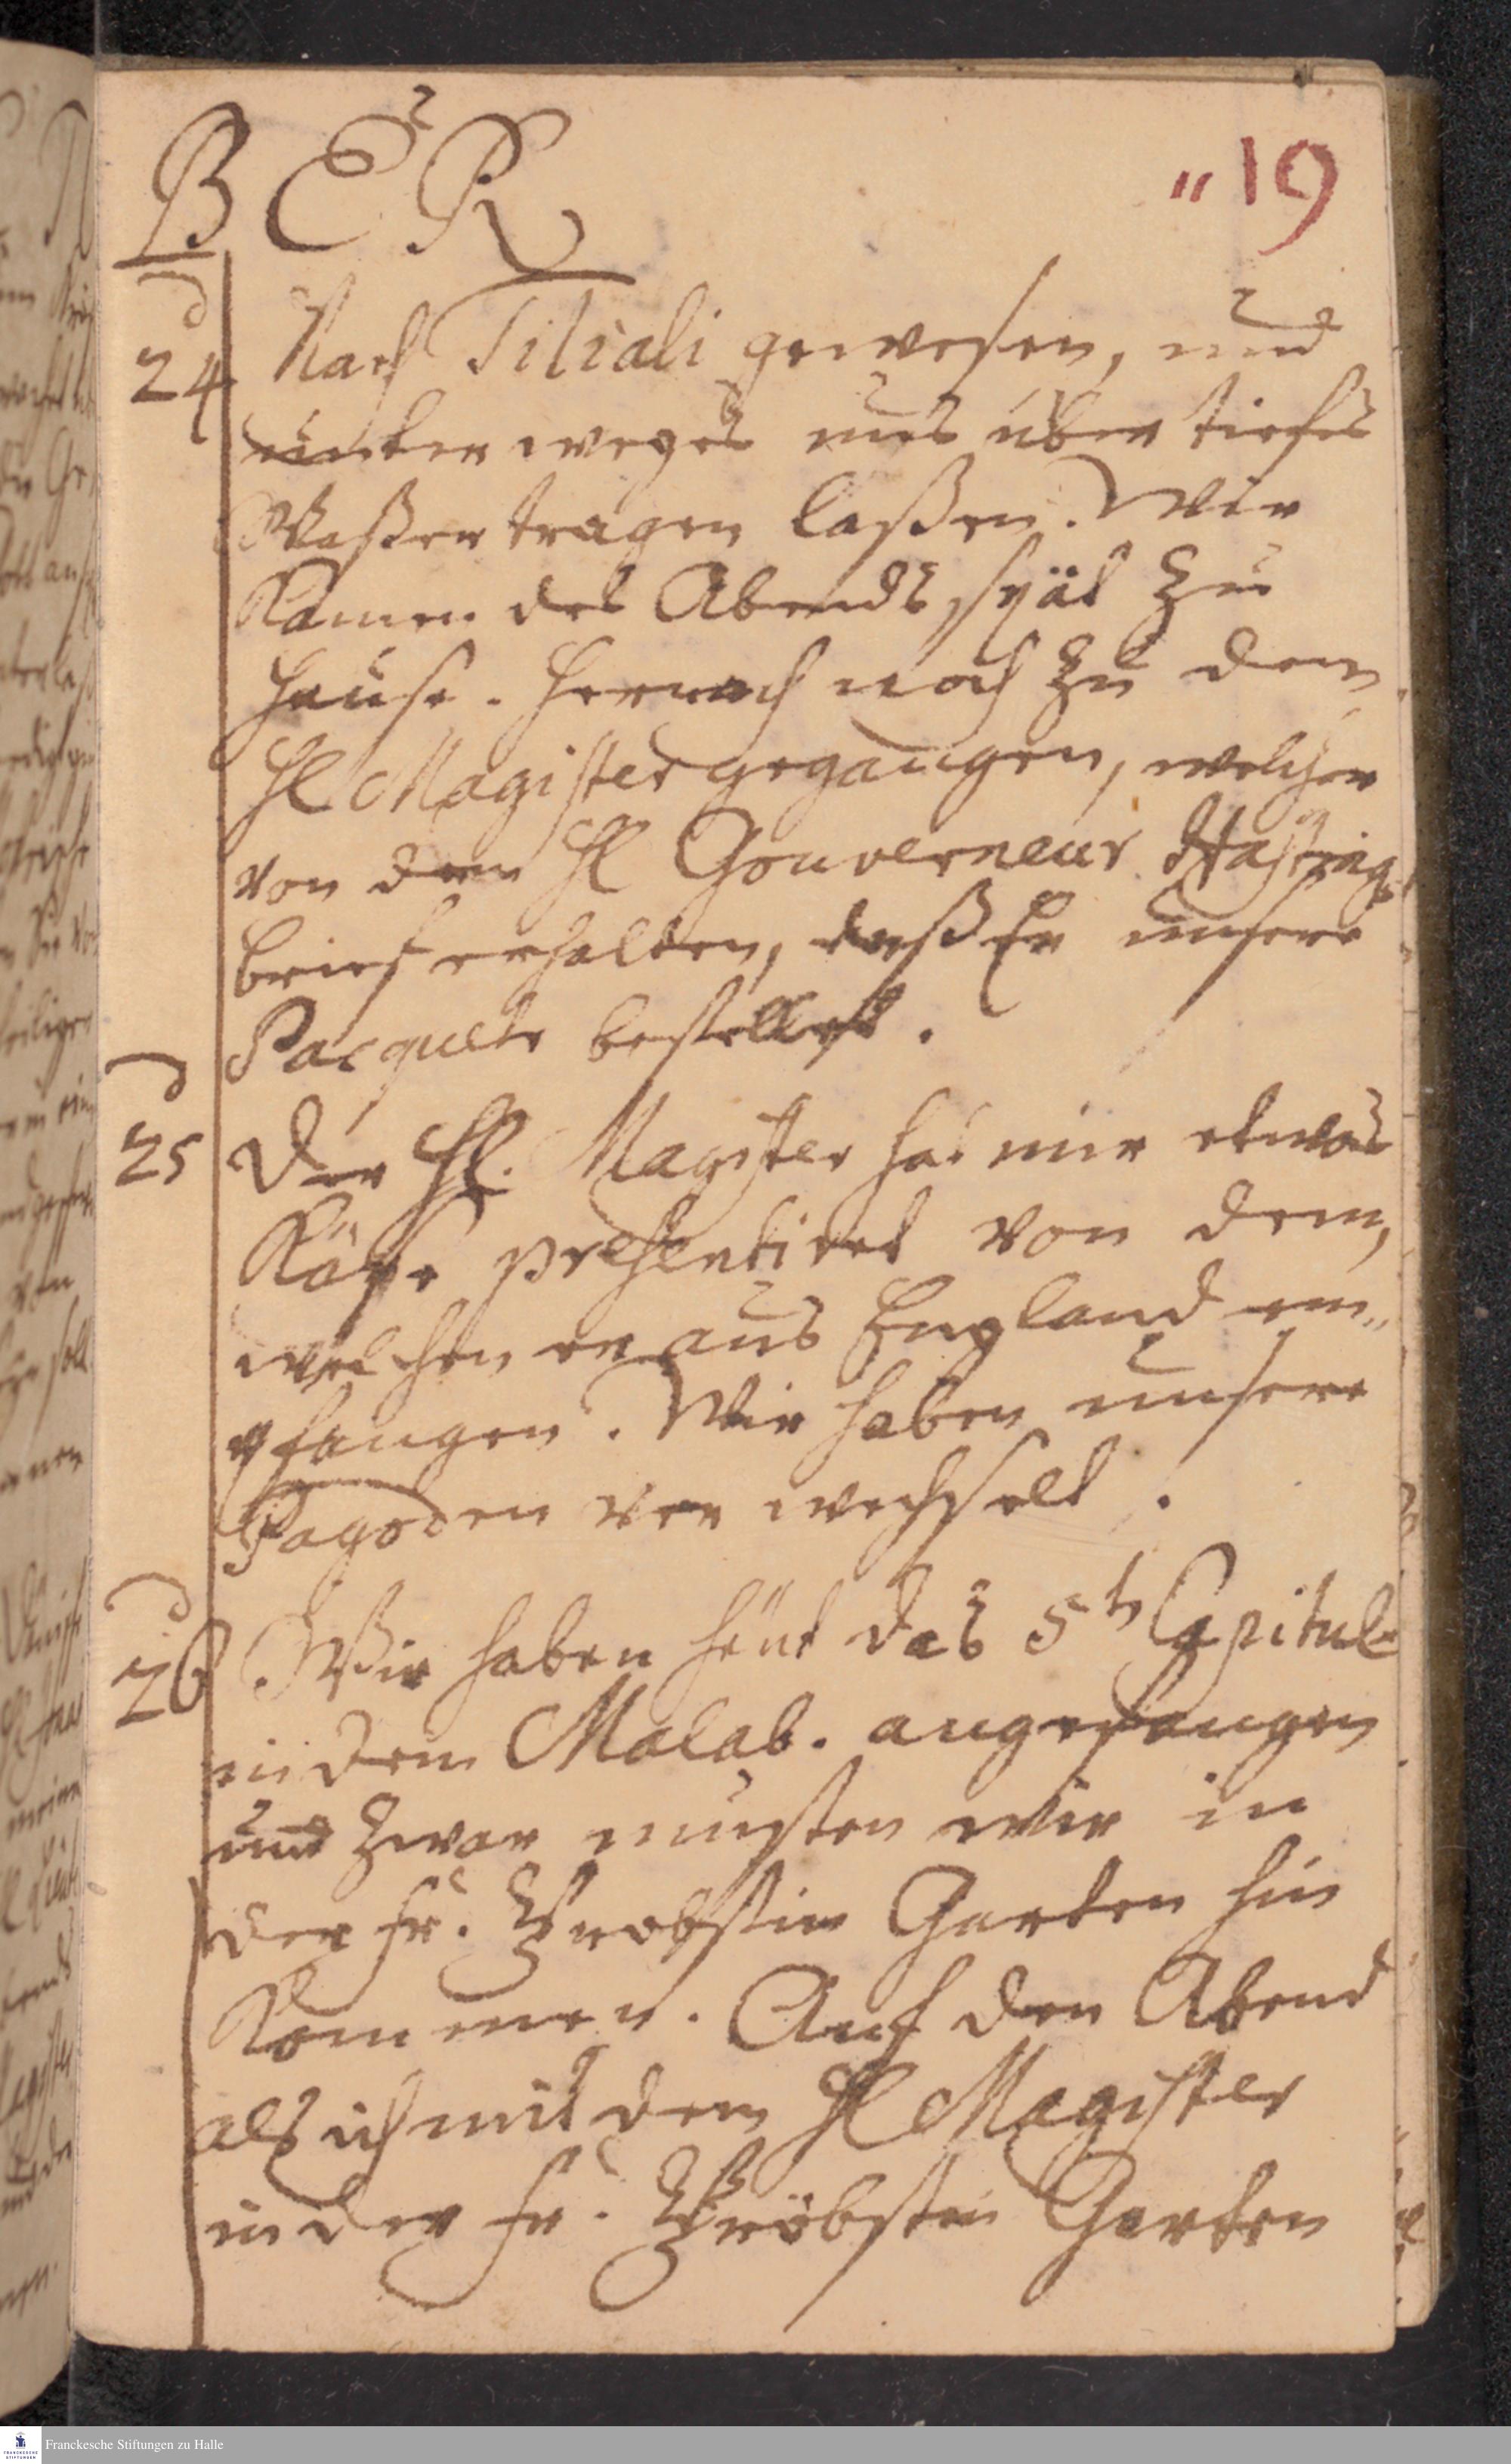 BER
"19
24 Nach Tiliali gewesen, und
unterweges uns über tiefes
Waßer tragen laßen. Wir
Kamen des Abends spät zu
Hause. Hernach noch zu dem
Hl Magister gegangen, welcher
von dem Hl Gouverneur Hastings
brief erhalten, daß Er unsere
Pacquete bestellet.
25 Der Hl. Magister hat mir etwas
Käse presentiret von dem,
welchen er aus England em„
pfangen. Wir haben unsere
Pagoden verwechselt.
26 Wir haben heut das 5te Capitul
in dem Malab. angefangen
und zwar musten wir in
der Fr. Probstin Garten hin
Kommen. Auf den Abend
als ich mit dem Hl Magister
in der Fr. Pröbstin Garten
Franckesche Stiftungen zu Halle